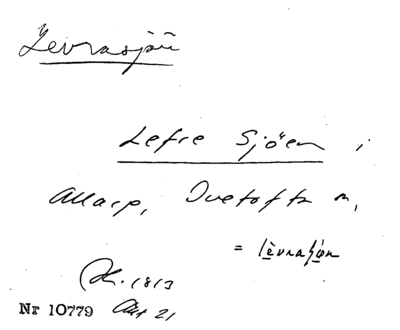 Levrasjön
Lefre Sjöen i
Allarp, Ivetofta m,
= lèvraſjö́n
1813
Nr 10779 Akt 21